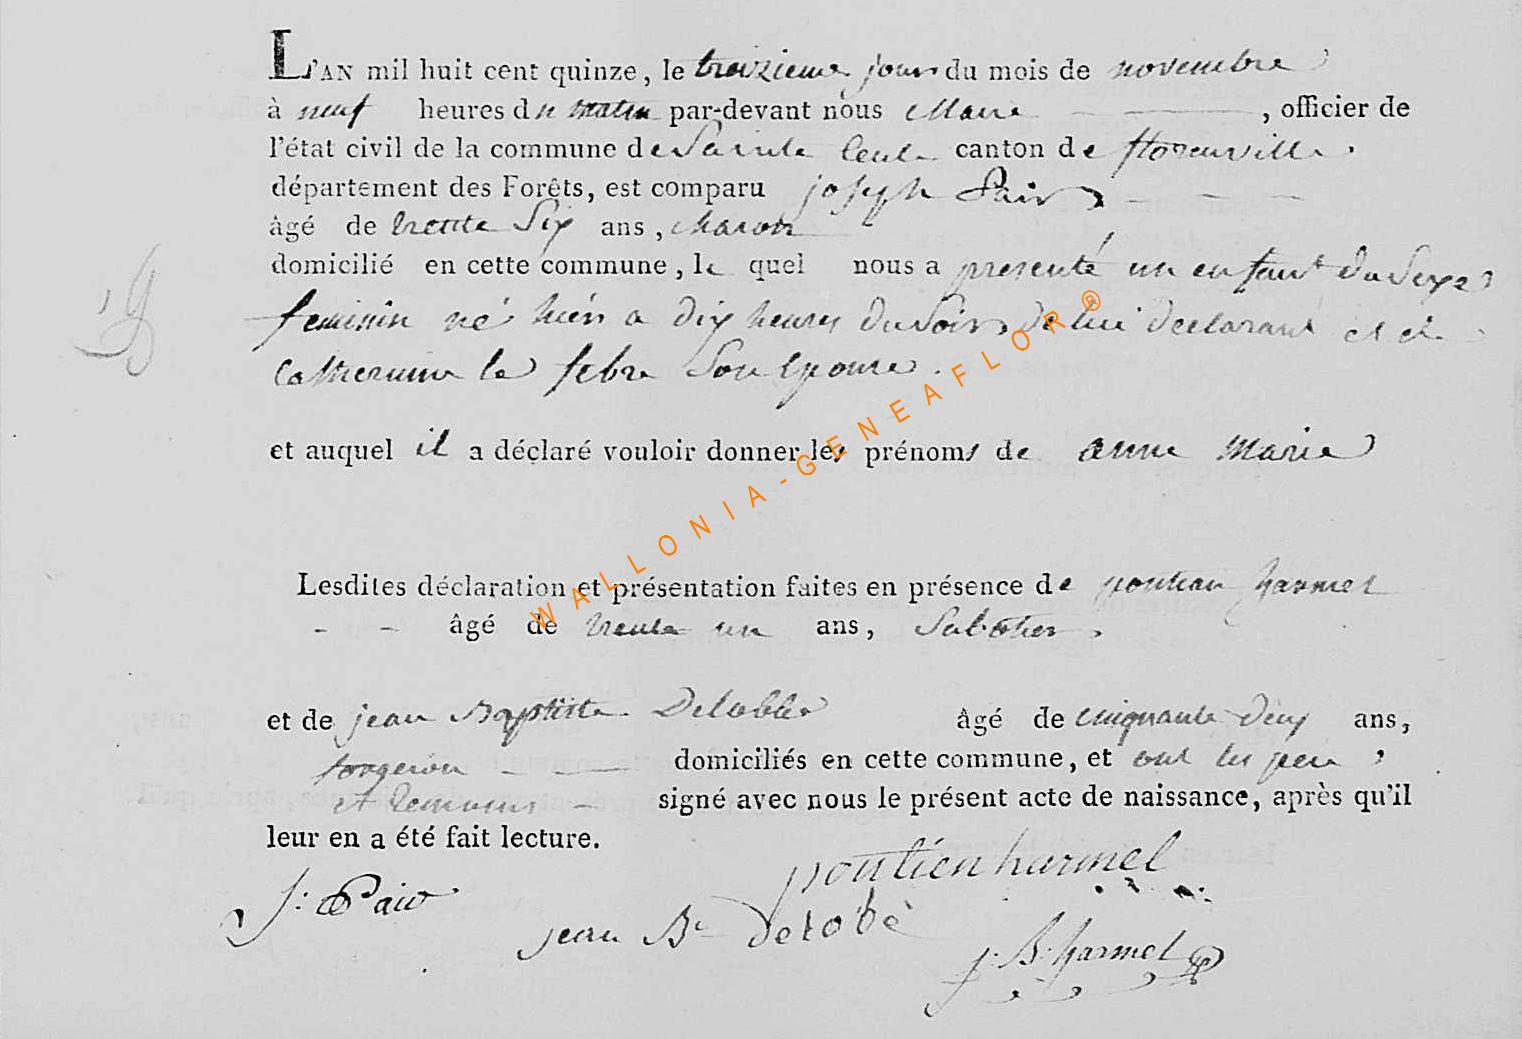 L'AN mil huit cent quinze, le treizieme jour du mois de novembre
à neuf heures du matin par-devant nous Maire, officier de
l'état civil de la commune de Sainte Cecile canton de florenville
département des Forêts, est comparu joseph
âgé de trente Six ans,
domicilié en cette commune, le quel nous a presenté un enfant du Sexe
19
feminin né hier a dix heures du Soir, de lui declarant et de
Catherinne le febre Son epouse.
et auquel il a déclaré vouloir donner les prénoms de anne Marie
Lesdites déclaration et présentation faites en présence de pontian harmel
âgé de trente un ans, Sabotier
et de jean Baptiste Delobbe âgé de cinquante deux ans,
forgeron domiciliés en cette commune, et ont les pere
et temoins signé avec nous le présent acte de naissance, après qu'il
leur en a été fait lecture.
pontien harmel
J: Paiw
jean Bte delobè
j: B. harmel
WALLONIA-GENEAFLOR®